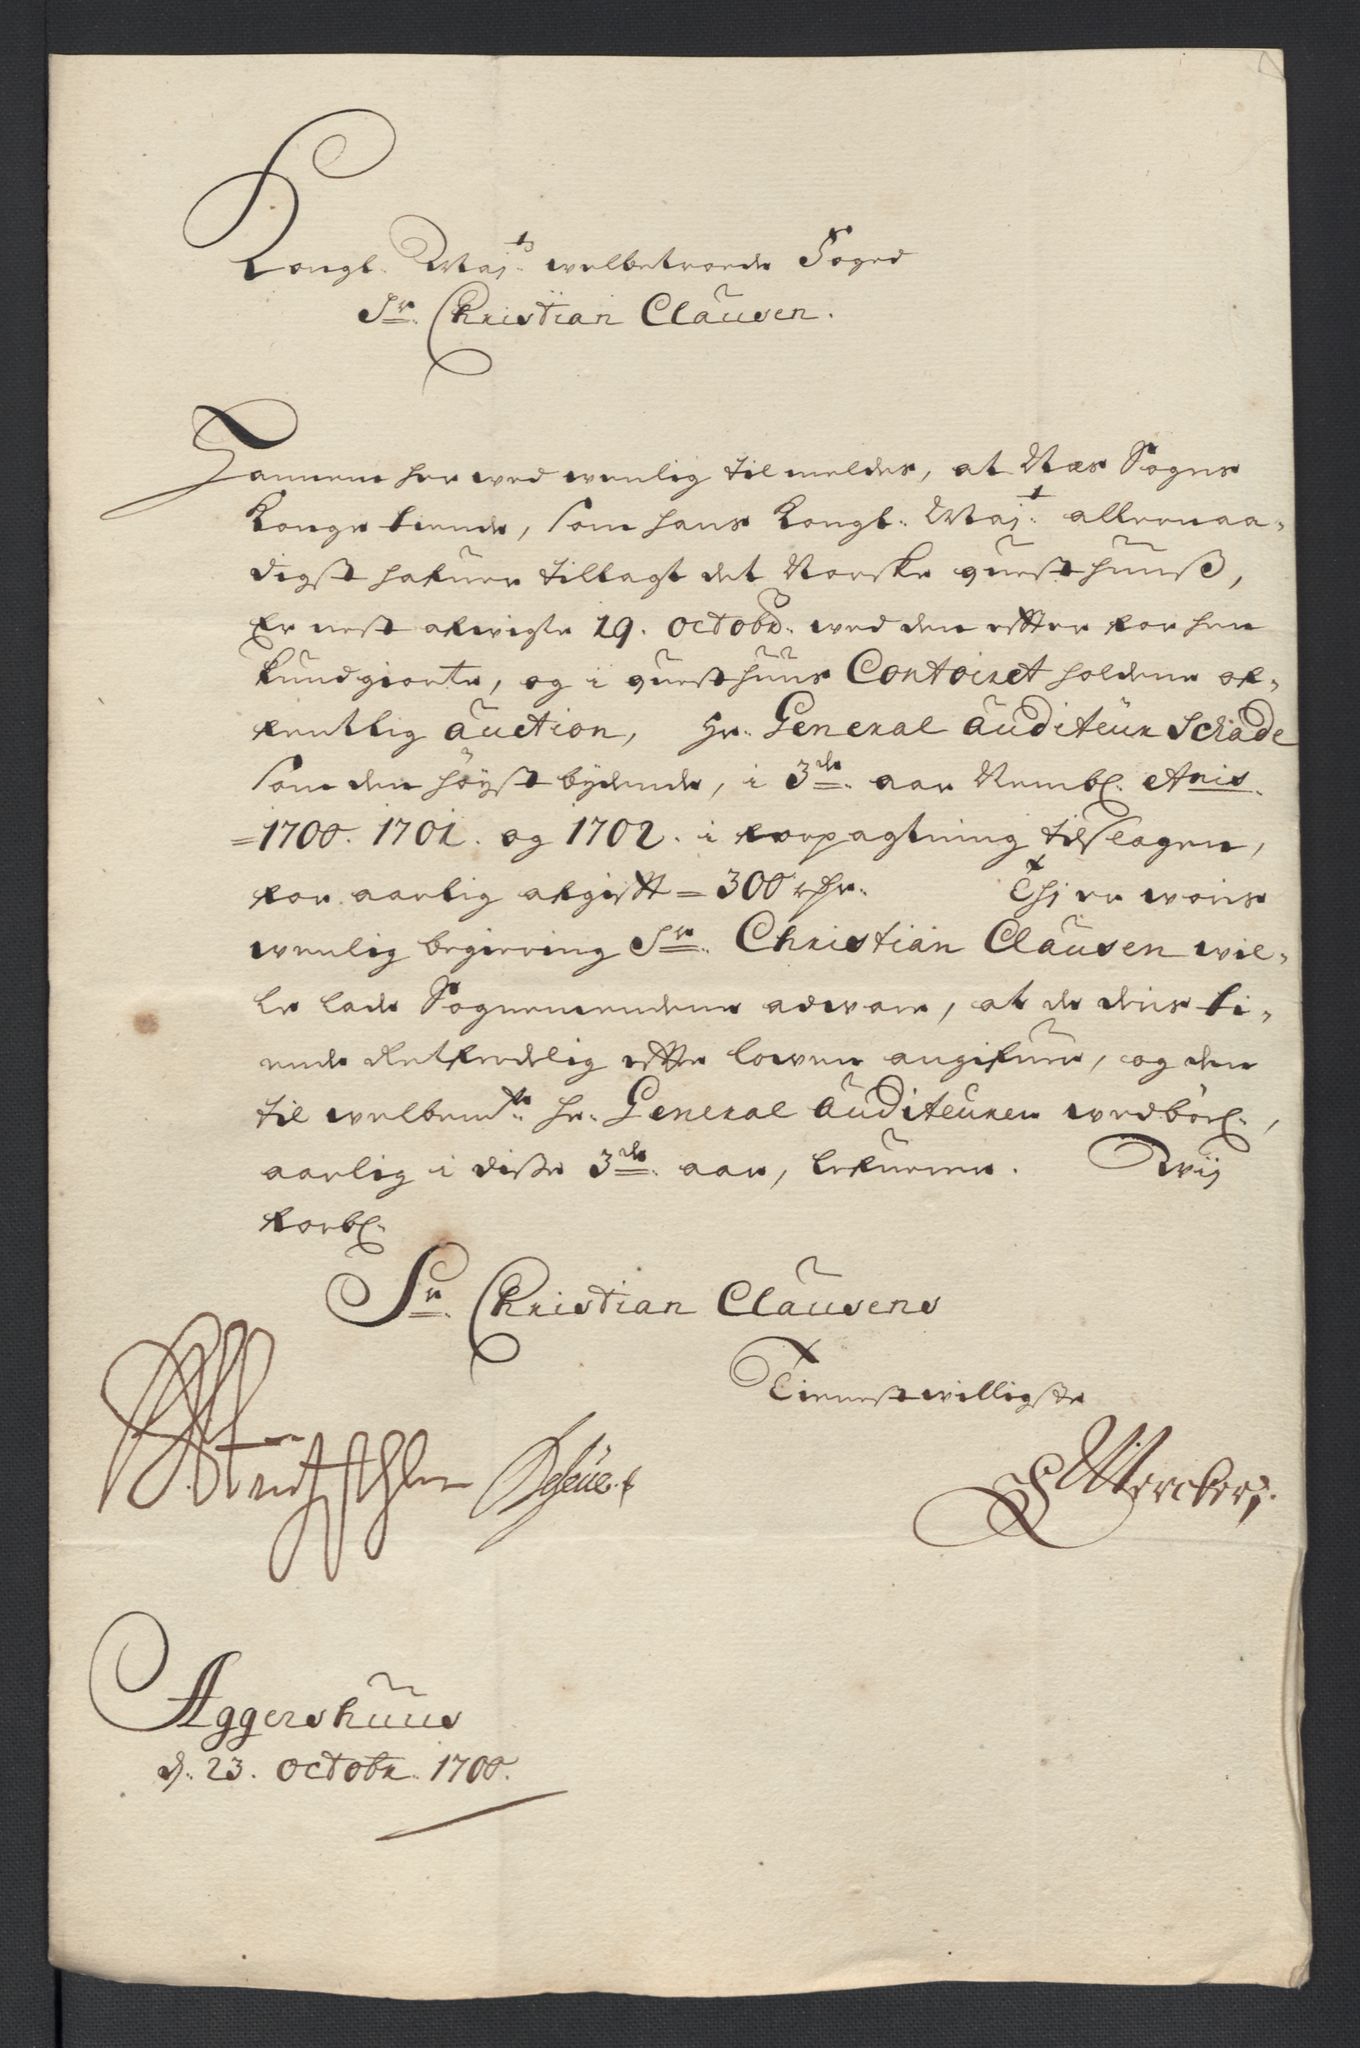 Kongl. Maj.t welbetroede Foged
Sr. Christian Clausen.
Hannem her wed wenlig tilmeldes, at Næs Sogns
Konge tiende, som hans Kongl. Maj.t allernaa-
digst hafuer tillagt det Norske questhuuss,
Er nest afwigte 19. octobr. wed den effter forhen
kundgiorte, og i questhuus Contoiret holdene of-
fentlig auction, Hr. General auditeur Schade
som den høyst bydende, i 3de. aar Nembl. Anis.
=1700. 1701. og 1702. i forpagtning tilslagen,
for aarlig afgifft = 300 rdr. Thj er woris
wenlig begiering Sr. Christian Clausen wil-
le lade Sognemendene adware, at de deris ti-
ende Retferdelig effter lowen angifuer, og den
til welbemte. hr. General auditeuren wedbørl.,
aarlig i disse 3de. aar, lefuerer. Wij
forbl.
Sr. Christian Clausens
Tienestwilligste
S Wercker
Aggershuus
d. 23. octobr. 1700.